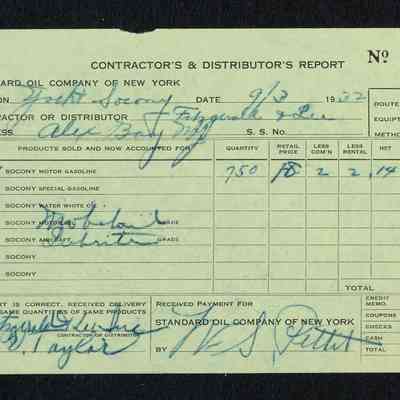 CONTRACTOR'S & DISTRIBUTOR'S REPORT Nº
DARD OIL COMPANY OF NEW YORK
ON Yacht Socony DATE 9/3 1932
ACTOR OR DISTRIBUTOR Fitzgerald & Lee
ESS Alex Bay S. S. No.
ROUTE
EQUIPT
METHO
PRODUCTS SOLD AND NOW ACCOUNTED FOR QUANTITY RETAIL PRICE LESS COM'N LESS RENTAL NET
SOCONY MOTOR GASOLINE 750 18 2 2 .14
SOCONY SPECIAL GASOLINE
SOCONY WATER WHITE OIL
SOCONY MOTOR OIL GRADE
SOCONY AIRCRAFT GRADE
SOCONY
SOCONY
TOTAL
RT IS CORRECT. RECEIVED DELIVERY
SAME QUANTITIES OF SAME PRODUCTS
Fitzgerald & Lee Inc
CONTRACTOR OR DISTRIBUTOR
Taylor
RECEIVED PAYMENT FOR
STANDARD OIL COMPANY OF NEW YORK
BY W. S. Pettit
CREDIT MEMO.
COUPONS
CHECKS
CASH
TOTAL